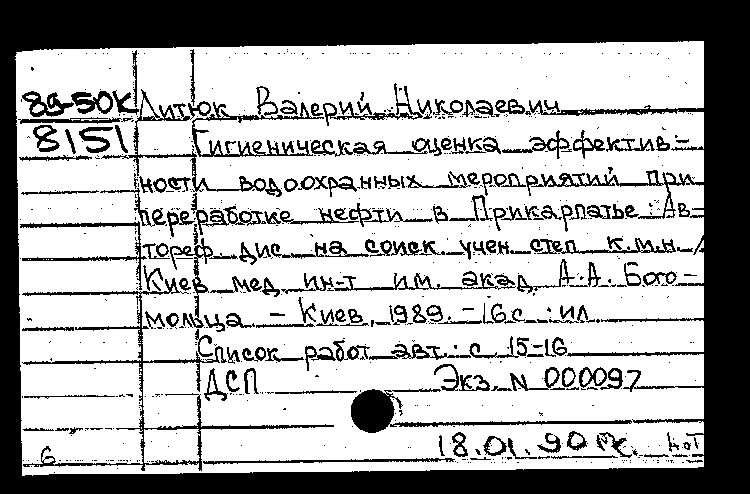 89-50К Литюк, Валерий Николаевич
8151 Гигиеническая оценка эффектив-
ности водоохранных мероприятий при
переработке нефти в Прикарпатье : Ав-
тореф. дис. на соиск. учен. степ. к.м.н. /
Киев. мед. ин-т им. акад. А.А. Бого-
мольца. - Киев, 1989. - 16 с. : ил.
Список работ авт.: с. 15-16
ДСП Экз. N 000097
18.01.90
6